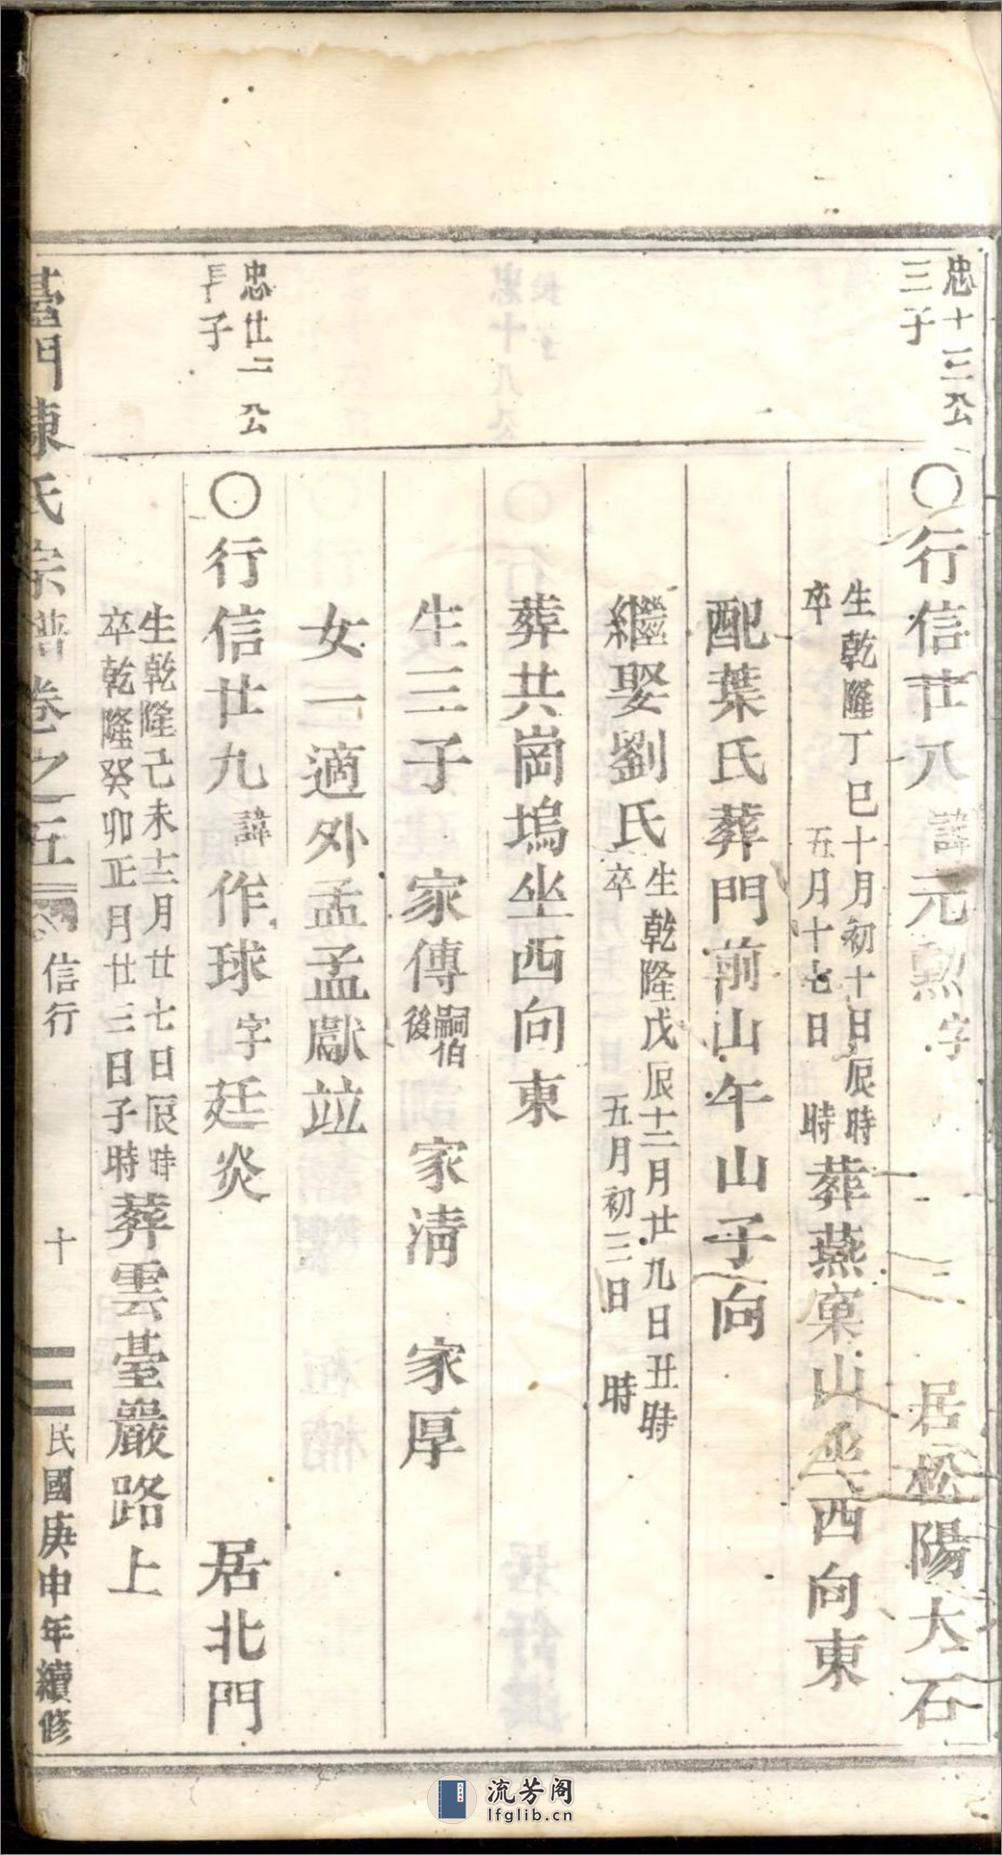 忠十三公
三子
〇行信廿八諱元勲字 居松陽大石
生乾隆丁巳十月初十日辰時
卒 五月十七日 時
葬燕窠山坐西向東
配葉氏葬門前山午山子向
繼娶劉氏
生乾隆戊辰十二月廿九日丑時
卒 五月初三日 時
葬共崗塢坐西向東
生三子 家傳嗣伯後 家清 家厚
女一適外孟孟獻竝
忠廿二公
長子
〇行信廿九諱作球字廷炎 居北門
生乾隆己未十二月廿七日辰時
卒乾隆癸卯正月廿三日子時
葬雲臺嚴路上
臺門陳氏宗譜 卷之五 信行 十 民國庚申年續修
流芳阁
lfglib.cn